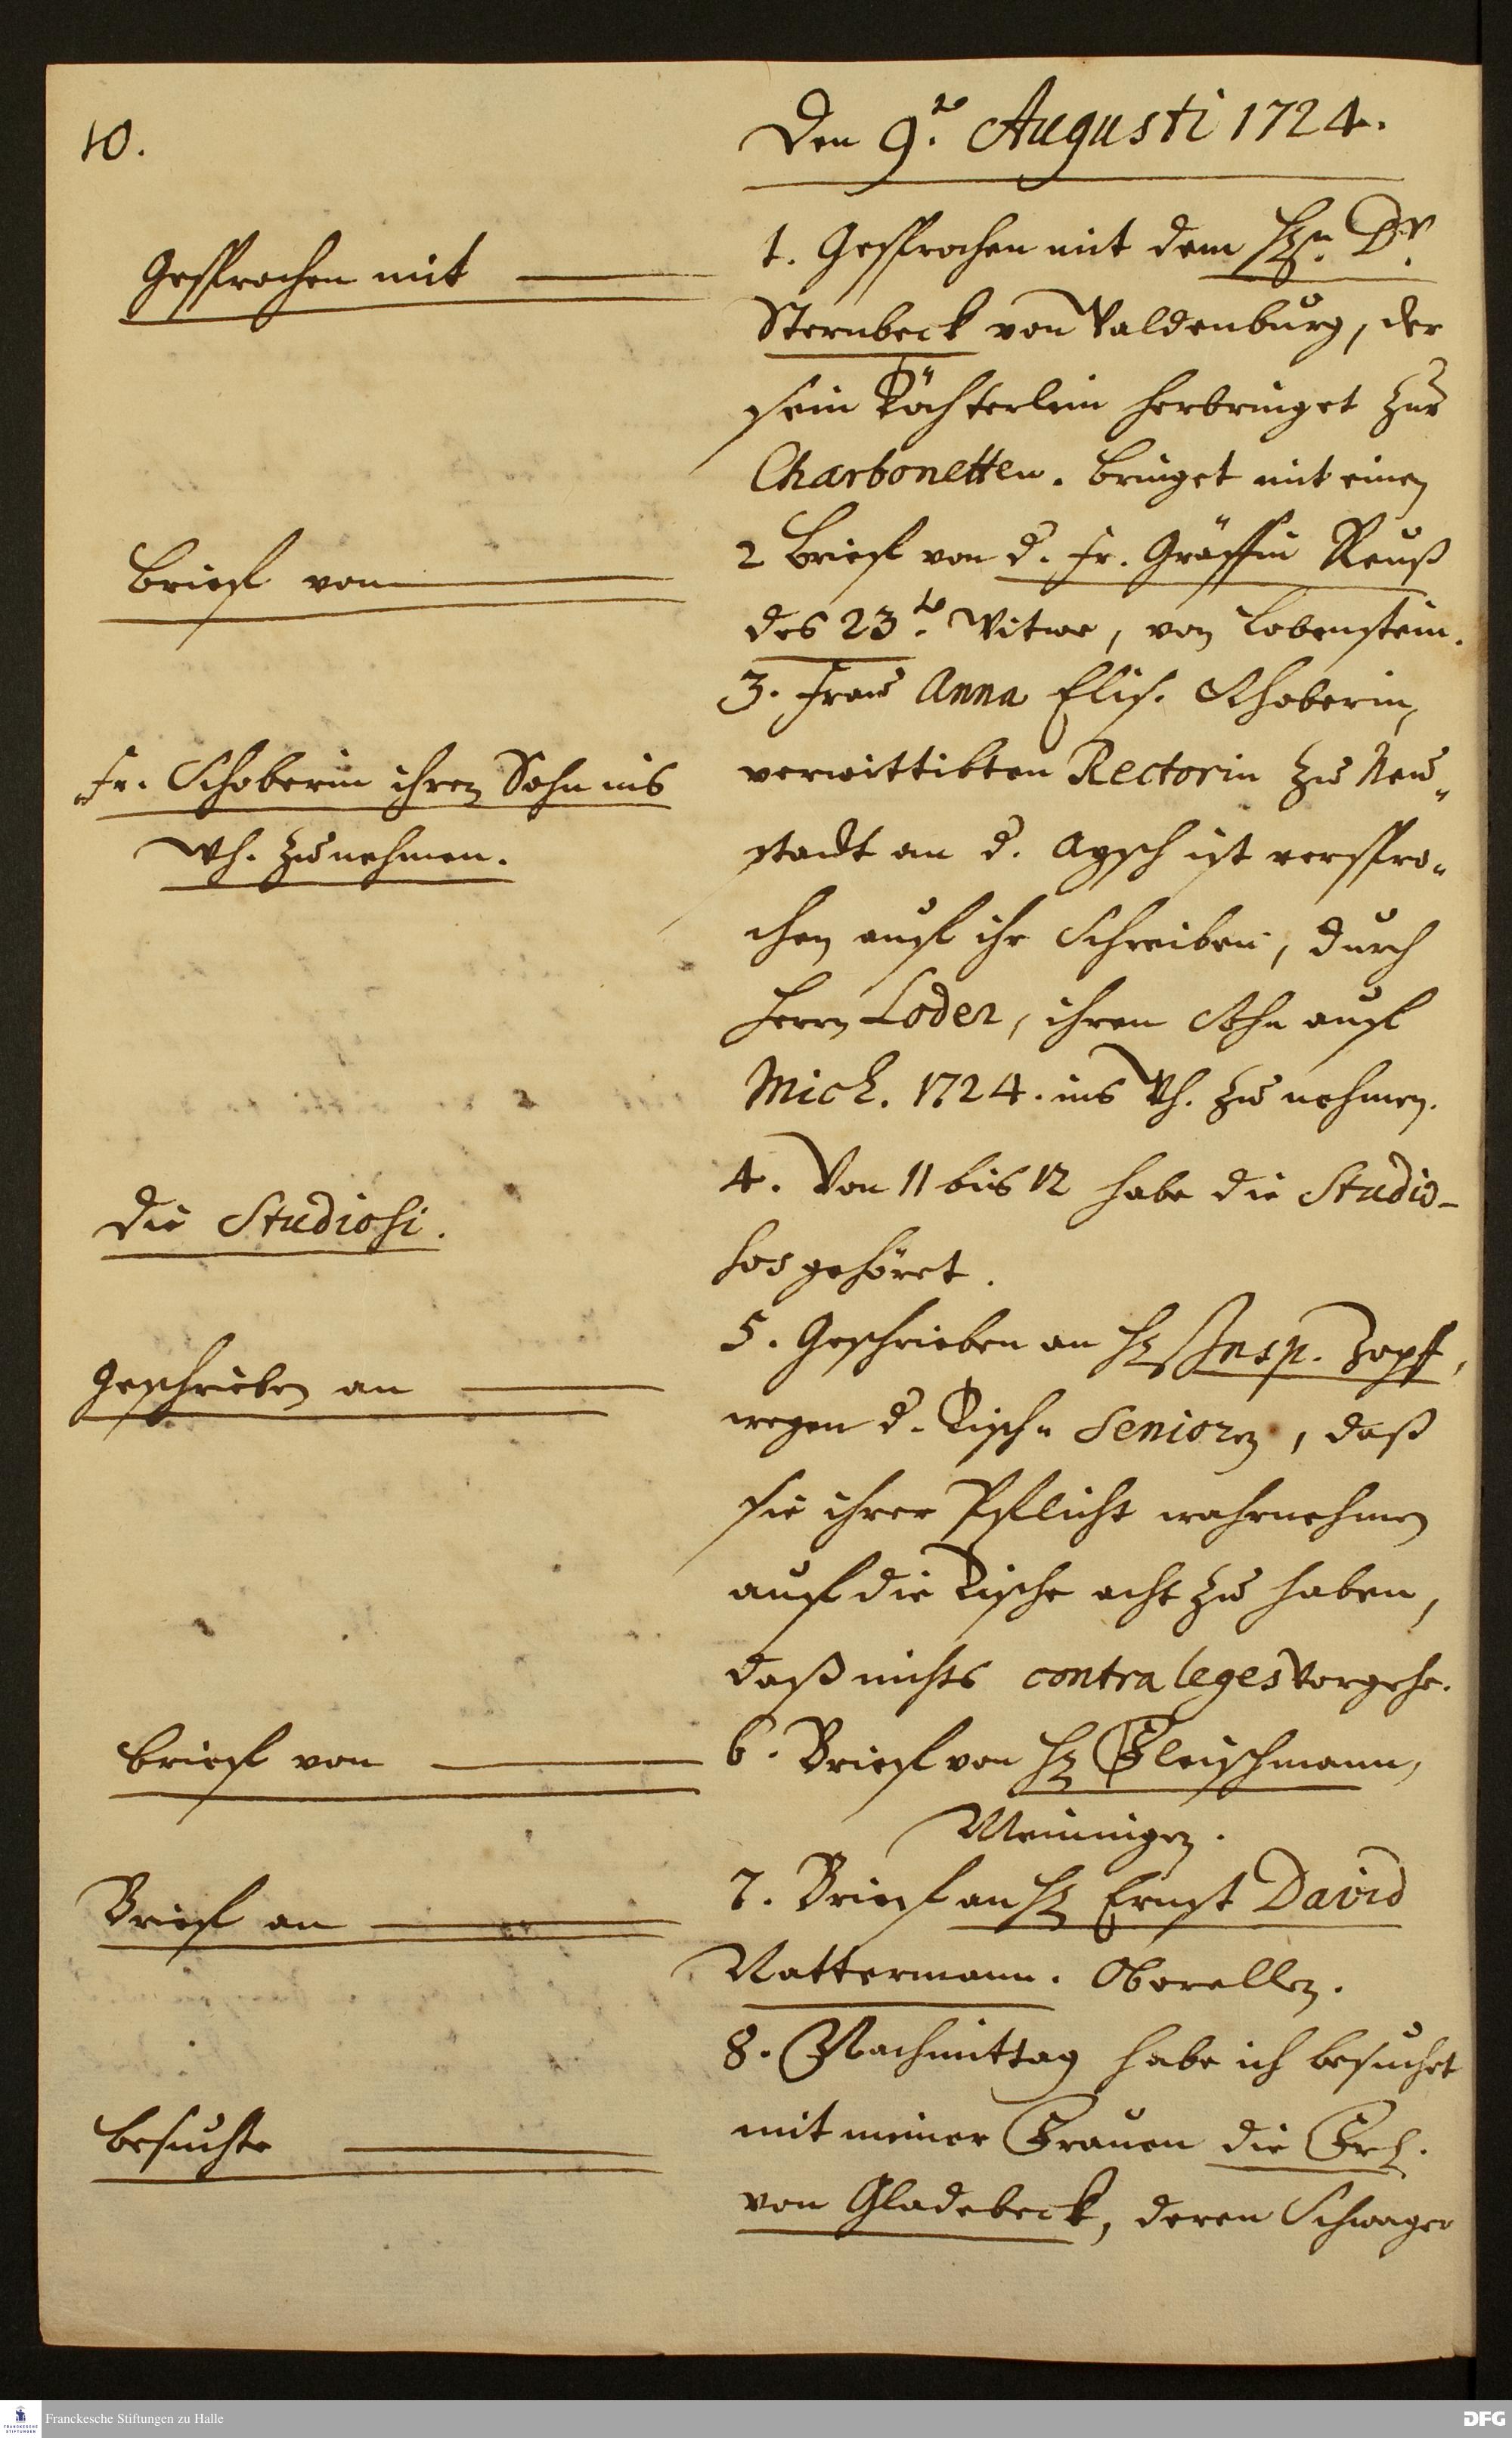 10.
Den 9.te Augusti 1724.
Gesprochen mit
1. Gesprochen mit dem Hn. Dr.
Sternbeck von Valdenburg, der
sein Töchterlein herbringet zur
Charbonetten. bringet mit einen
Brief von
2 Brief von d. Fr. Gräffin Reuß
des 23.te Witwe, von Lobenstein.
3. Frau Anna Elis. Schoberin,
Fr. Schoberin ihren Sohn ins
verwittibten Rectorin zu Neu-
Wh. zu nehmen.
stadt an d. Aysch ist verspro-
chen auf ihr Schreiben, durch
Herrn Loder, ihren Sohn auf
Mich. 1724. ins Wh. zu nehmen.
Die Studiosi.
4. Von 11 bis 12 habe die Studio-
sos gehöret.
Geschrieben an
5. Geschrieben an H. Insp. Zopff,
wegen d. Tisch- Senioren, daß
sie ihrer Pflicht wahrnehmen
auf die Tische acht zu haben,
daß nichts contra leges vorgehe.
Brief von
6. Brief von H. Fleischmann,
Meiningen.
Brief an
7. Brief an H. Ernst David
Nattermann. Oberellen.
8. Nachmittag habe ich besuchet
besuchte
mit meiner Frauen die Frl.
von Gladebeck, deren Schwager
Franckesche Stiftungen zu Halle
FRANCKESCHE STIFTUNGEN
DFG